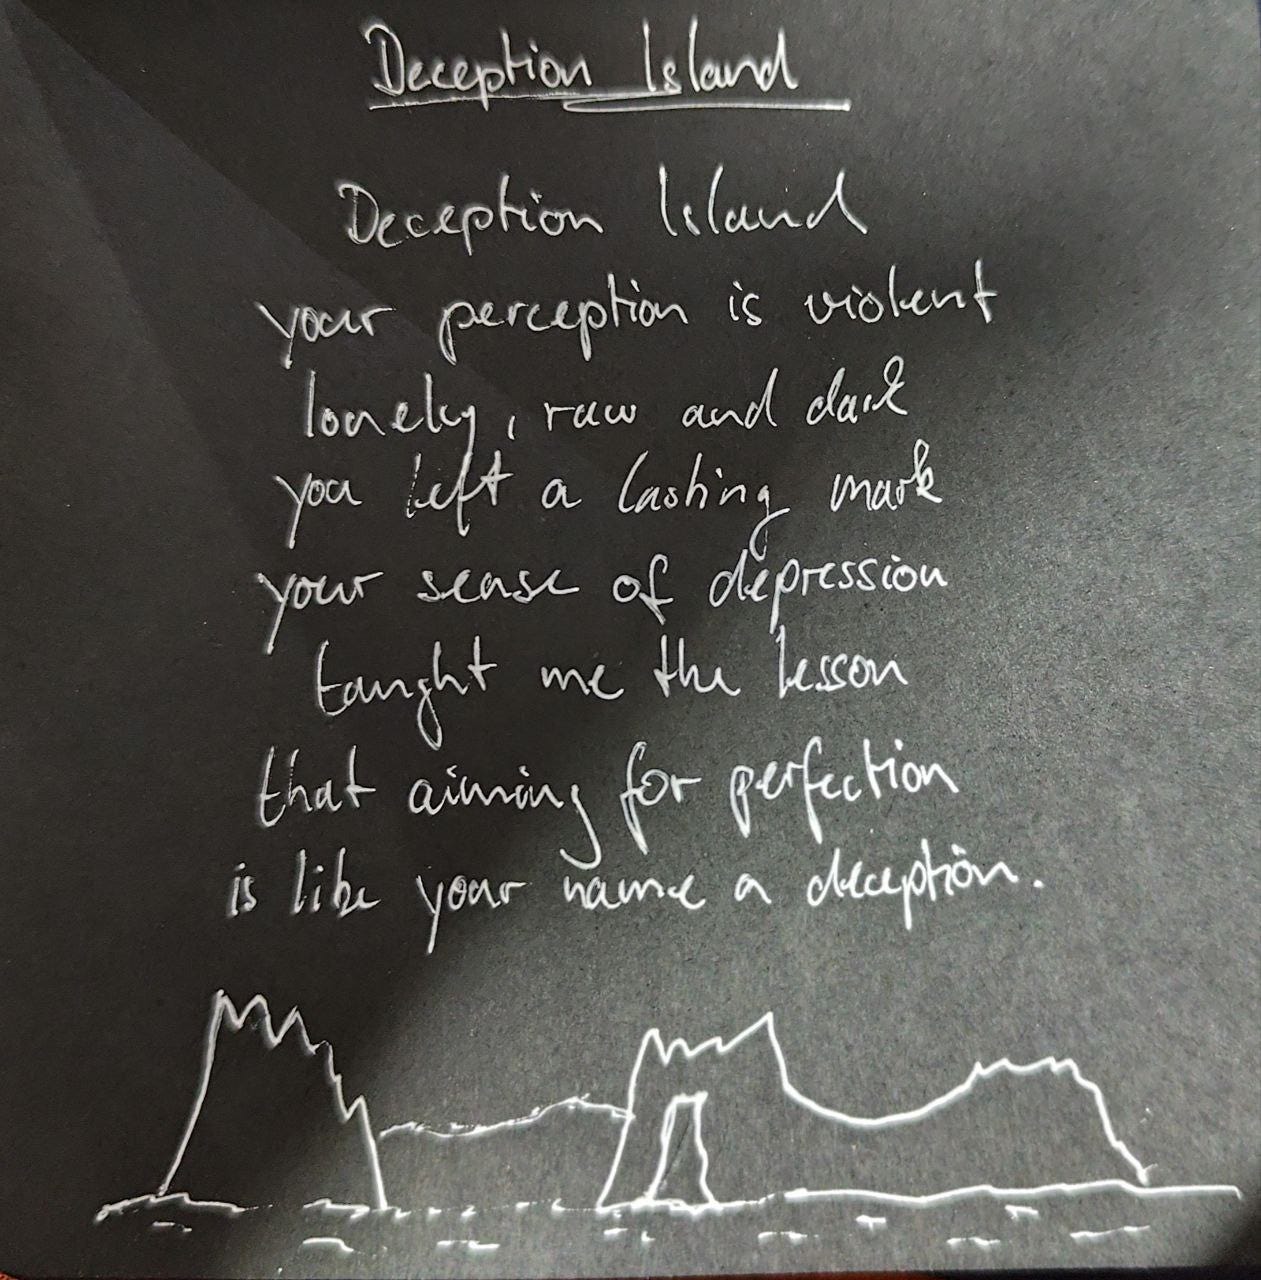 Deception Island
Deception Island
your perception is violent
lonely, raw and dark
you left a lasting mark
your sense of depression
taught me the lesson
that aiming for perfection
is like your name a deception.